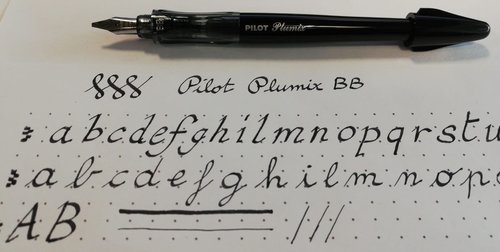 PILOT Plumix
Pilot Plumix BB
a b c d e f g h i l m n o p q r s t u
a b c d e f g h i l m n o p
A B